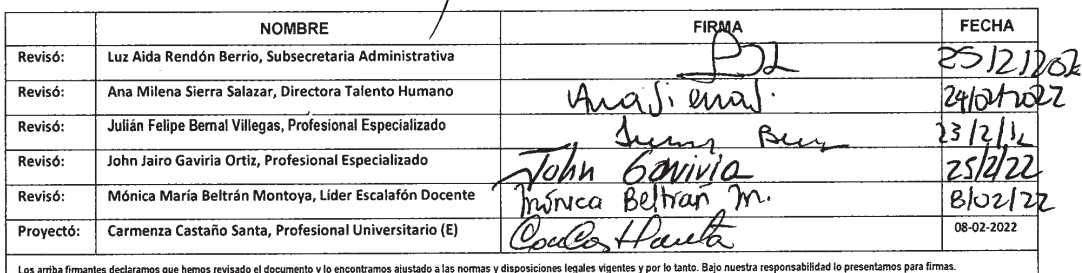 NOMBRE FIRMA FECHA
Revisó: Luz Aida Rendón Berrio, Subsecretaria Administrativa 25/2/202
Revisó: Ana Milena Sierra Salazar, Directora Talento Humano 24/02/2022
Revisó: Julián Felipe Bernal Villegas, Profesional Especializado 23/2/
Revisó: John Jairo Gaviria Ortiz, Profesional Especializado John Gaviria 25/2/22
Revisó: Mónica María Beltrán Montoya, Líder Escalafón Docente Mónica Beltrán M. 8/02/22
Proyectó: Carmenza Castaño Santa, Profesional Universitario (E) 08-02-2022
Los arriba firmantes declaramos que hemos revisado el documento y lo encontramos ajustado a las normas y disposiciones legales vigentes y por lo tanto. Bajo nuestra responsabilidad lo presentamos para firmas.